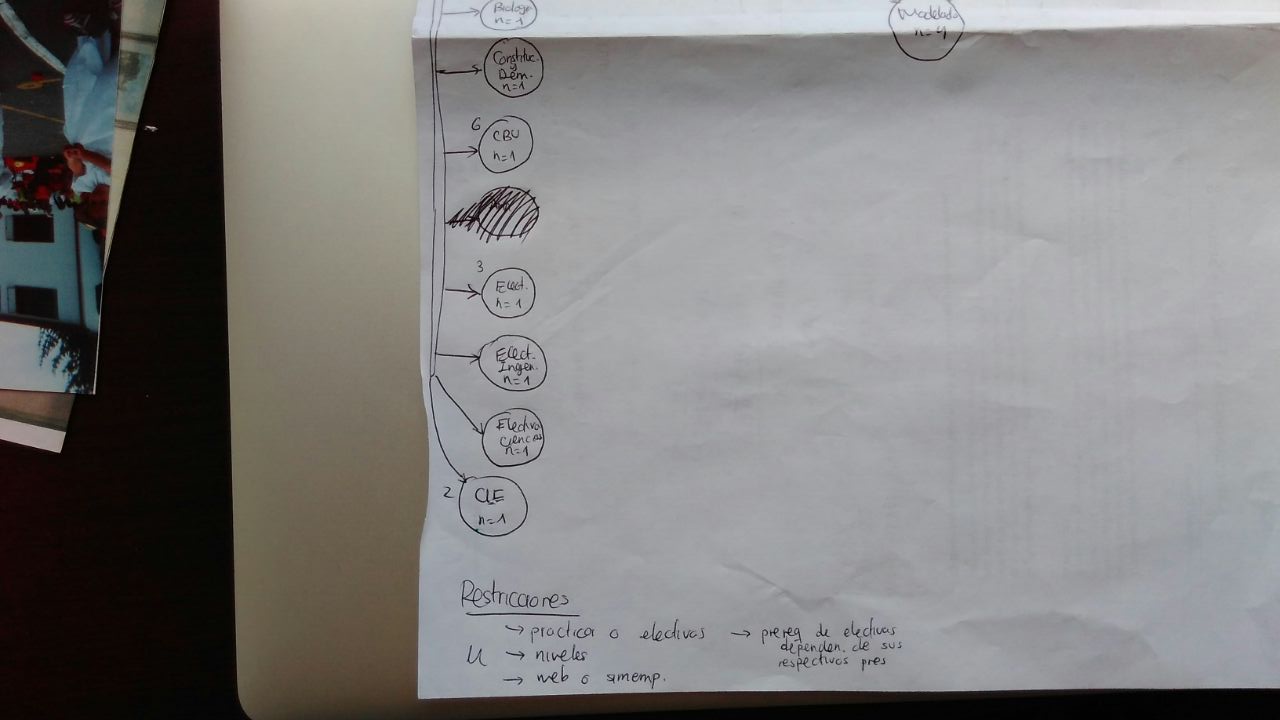 Biologí
n=1
Modelado
n=4
Constituc.
y
Dem.
n=1
6
CBU
n=1
3
Elect.
n=1
Elect.
Ingen.
n=1
Electiva
Ciencias
n=1
2
CLE
n=1
Restricciones
→ practica o electivas → prereq de electivas
dependen. de sus
respectivos pres
U → niveles
→ web o